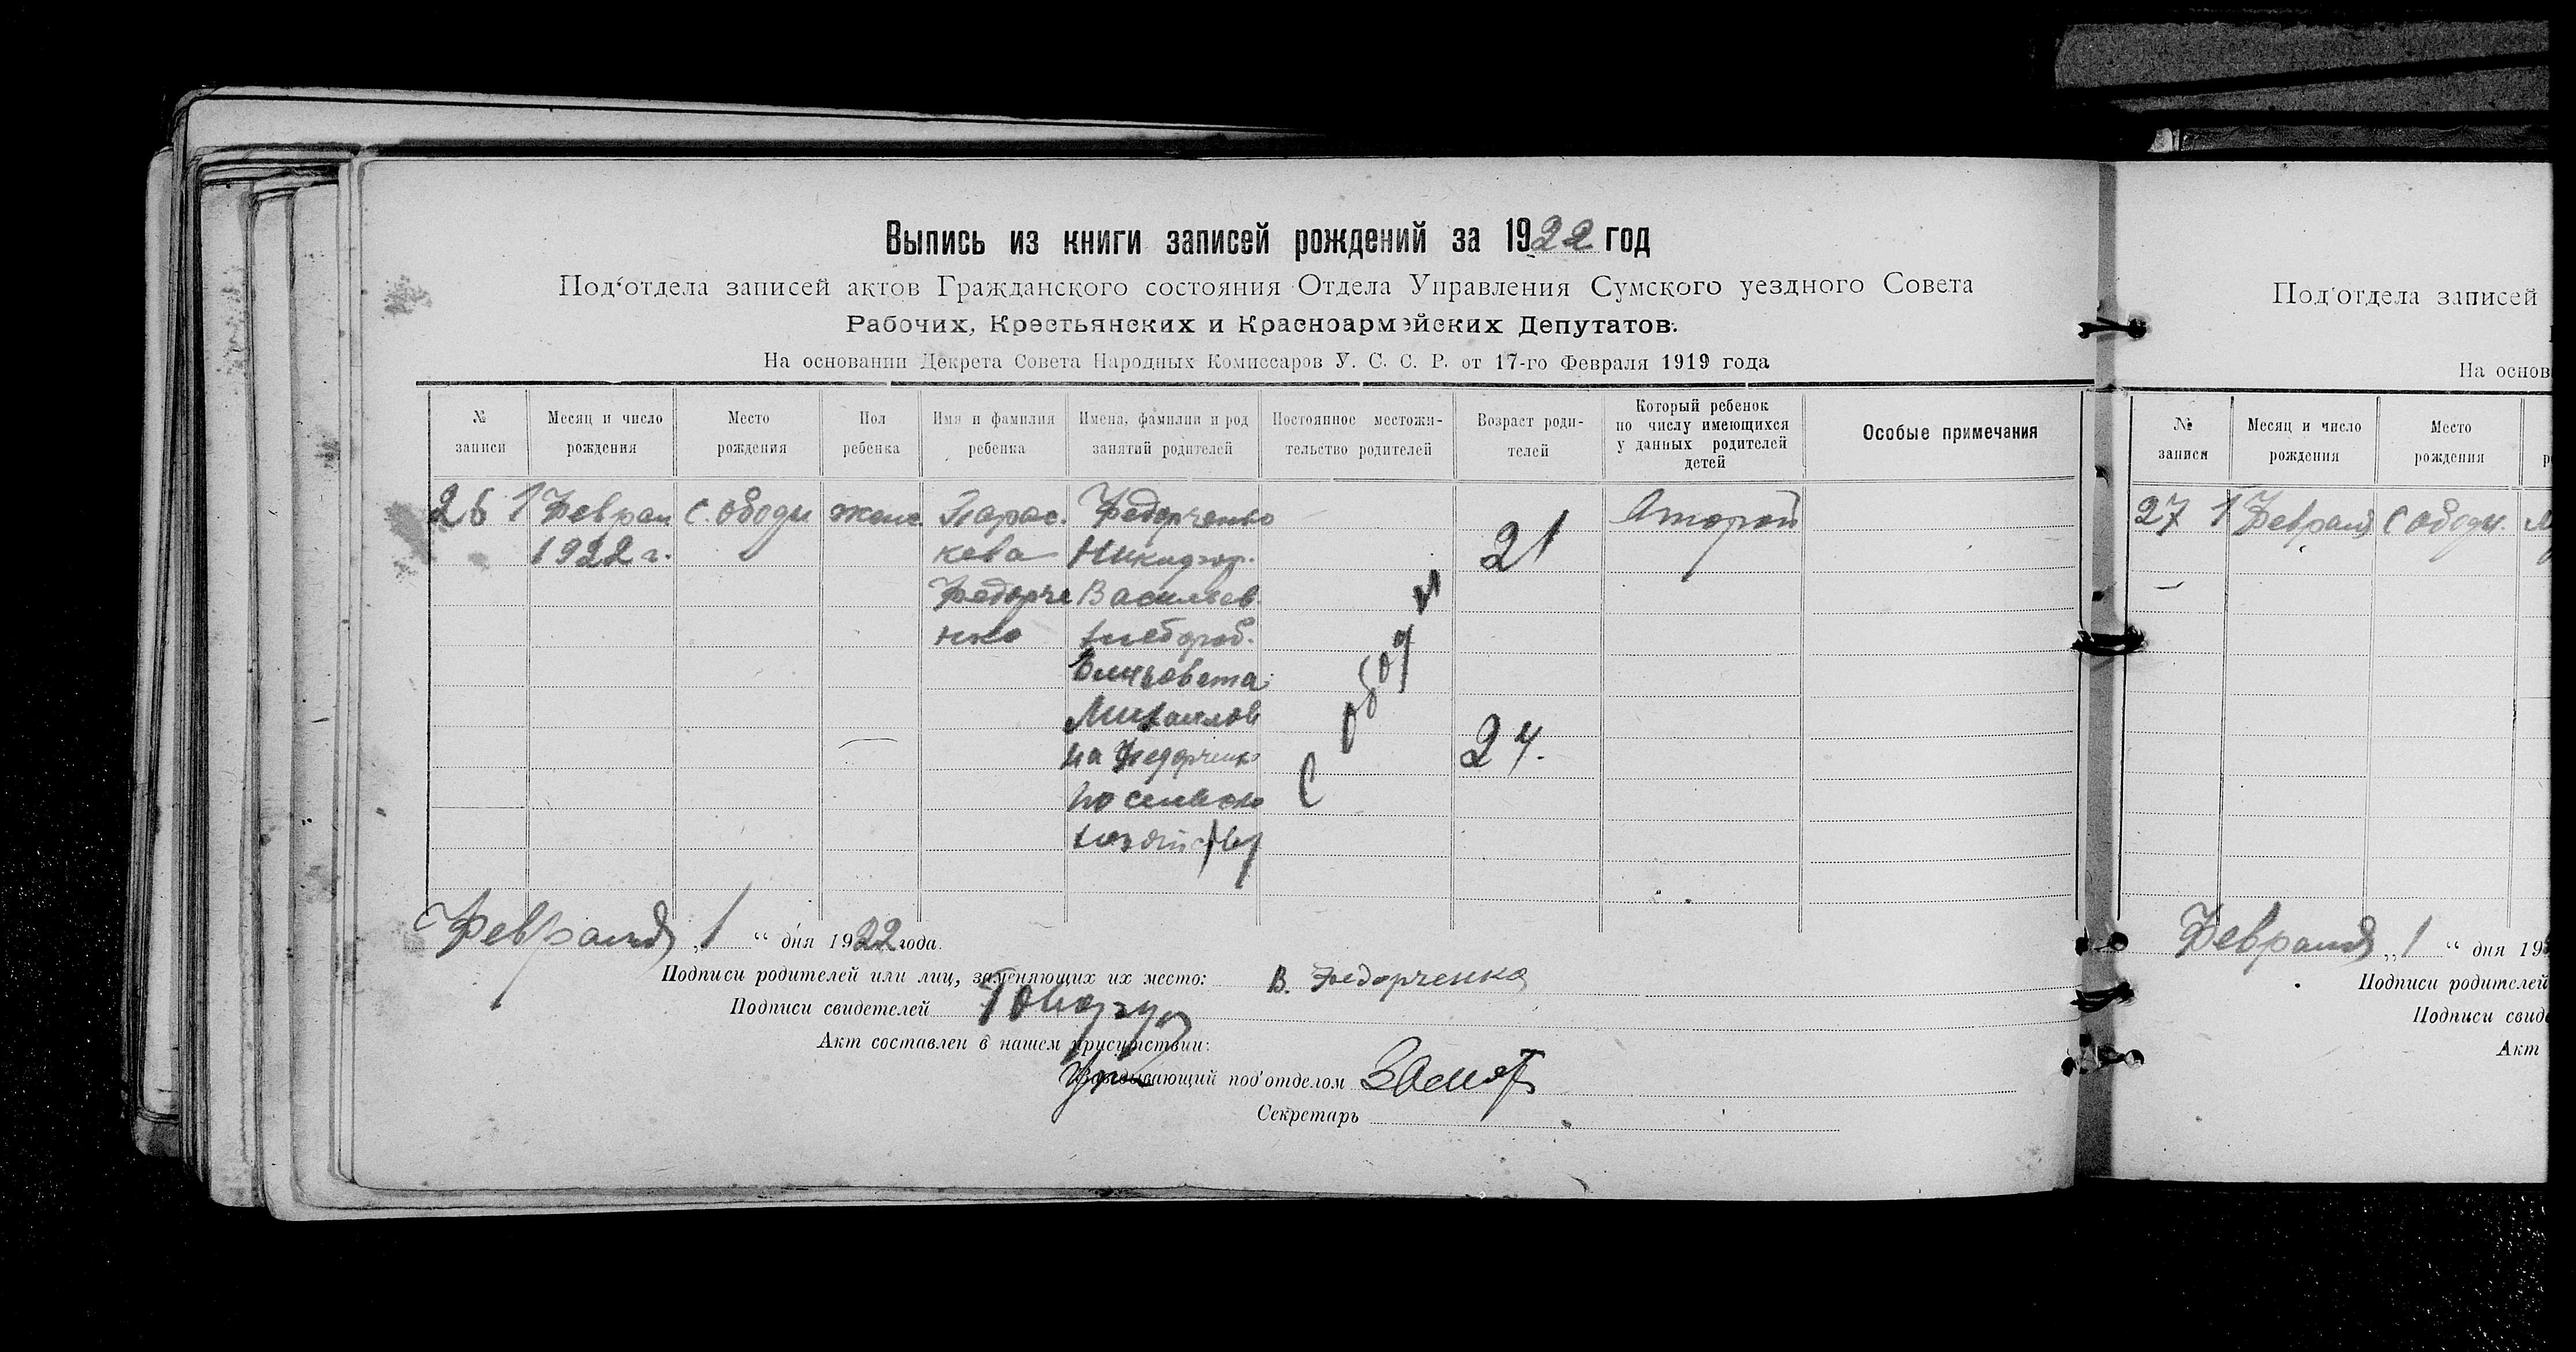 Выпись из книги записей рождений за 1922 год
Под‘отдела записей актов Гражданского состояния Отдела Управления Сумского уездного Совета
Рабочих, Крестьянских и Красноармейских Депутатов.
На основании Декрета Совета Народных Комиссаров У. С. С. Р. от 17-го Февраля 1919 года
№ записи
Месяц и число рождения
Место рождения
Пол ребенка
Имя и фамилия ребенка
Имена, фамилии и род занятий родителей
Постоянное местожительство родителей
Возраст родителей
Который ребенок по числу имеющихся у данных родителей детей
Особые примечания
26
1 Феврал
1922 г.
С. Ободы
женс
Парас.
кева
Федорче
нко
Федорченко
Никифор.
Васильев
хлебороб.
Елизавета
Михаилов
на Федорченко
С ободы
21
24.
Второй
Февраля „ 1 “ дня 1922 года.
Подписи родителей или лиц, заменяющих их место: В. Федорченко
Подписи свидетелей
Акт составлен в нашем присутствии:
Заведывающий под‘отделом
Секретарь
Под‘отдела записей
На основ
№ записи
Месяц и число рождения
Место рождения
27
1 Февраля
С Ободы.
Февраля „ 1 “ дня 19
Подписи родителей
Подписи свиде
Акт